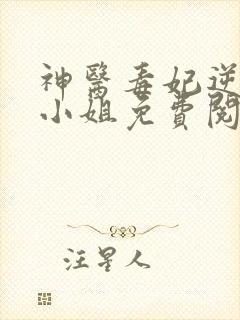 神醫毒妃逆
小姐免費閱
汪星人